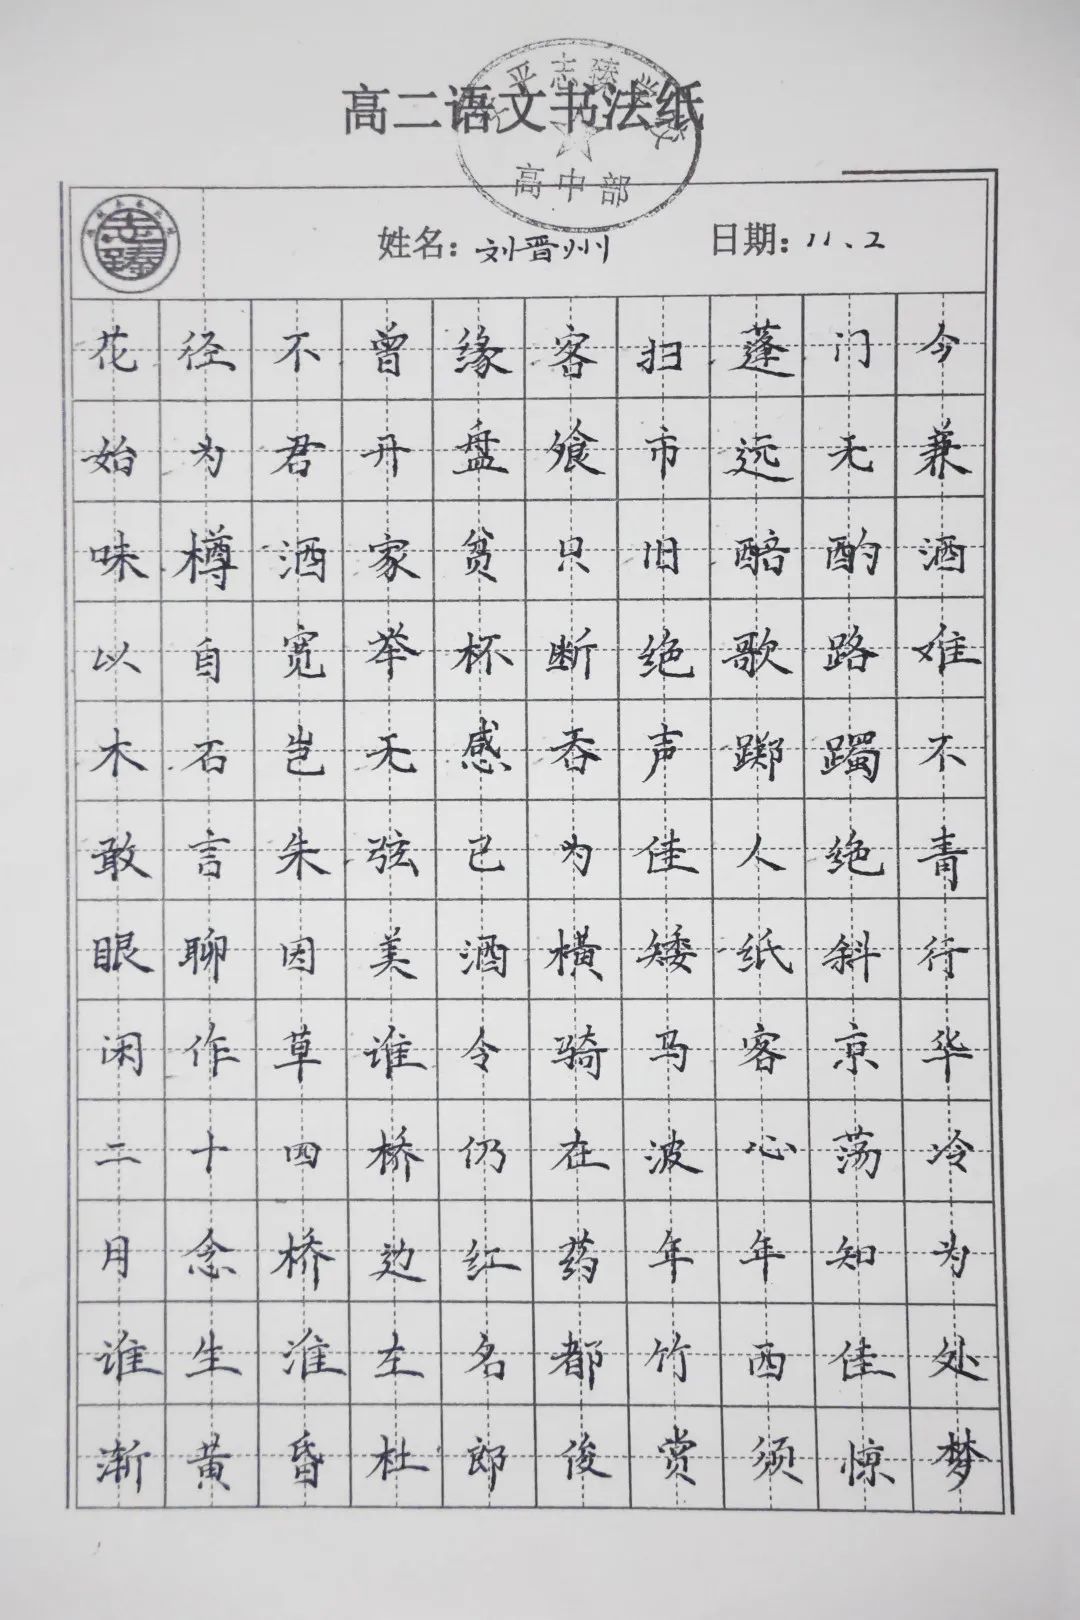 高二语文书法纸
平志臻学
高中部
志臻
姓名：刘晋州 日期：11、2
花径不曾缘客扫蓬门今
始为君开盘飧市远无兼
味樽酒家贫只旧醅酌酒
以自宽举杯断绝歌路难
木石岂无感吞声踯躅不
敢言朱弦已为佳人绝青
眼聊因美酒横矮纸斜行
闲作草谁令骑马客京华
二十四桥仍在波心荡冷
月念桥边红药年年知为
谁生淮左名都竹西佳处
渐黄昏杜郎俊赏须惊梦